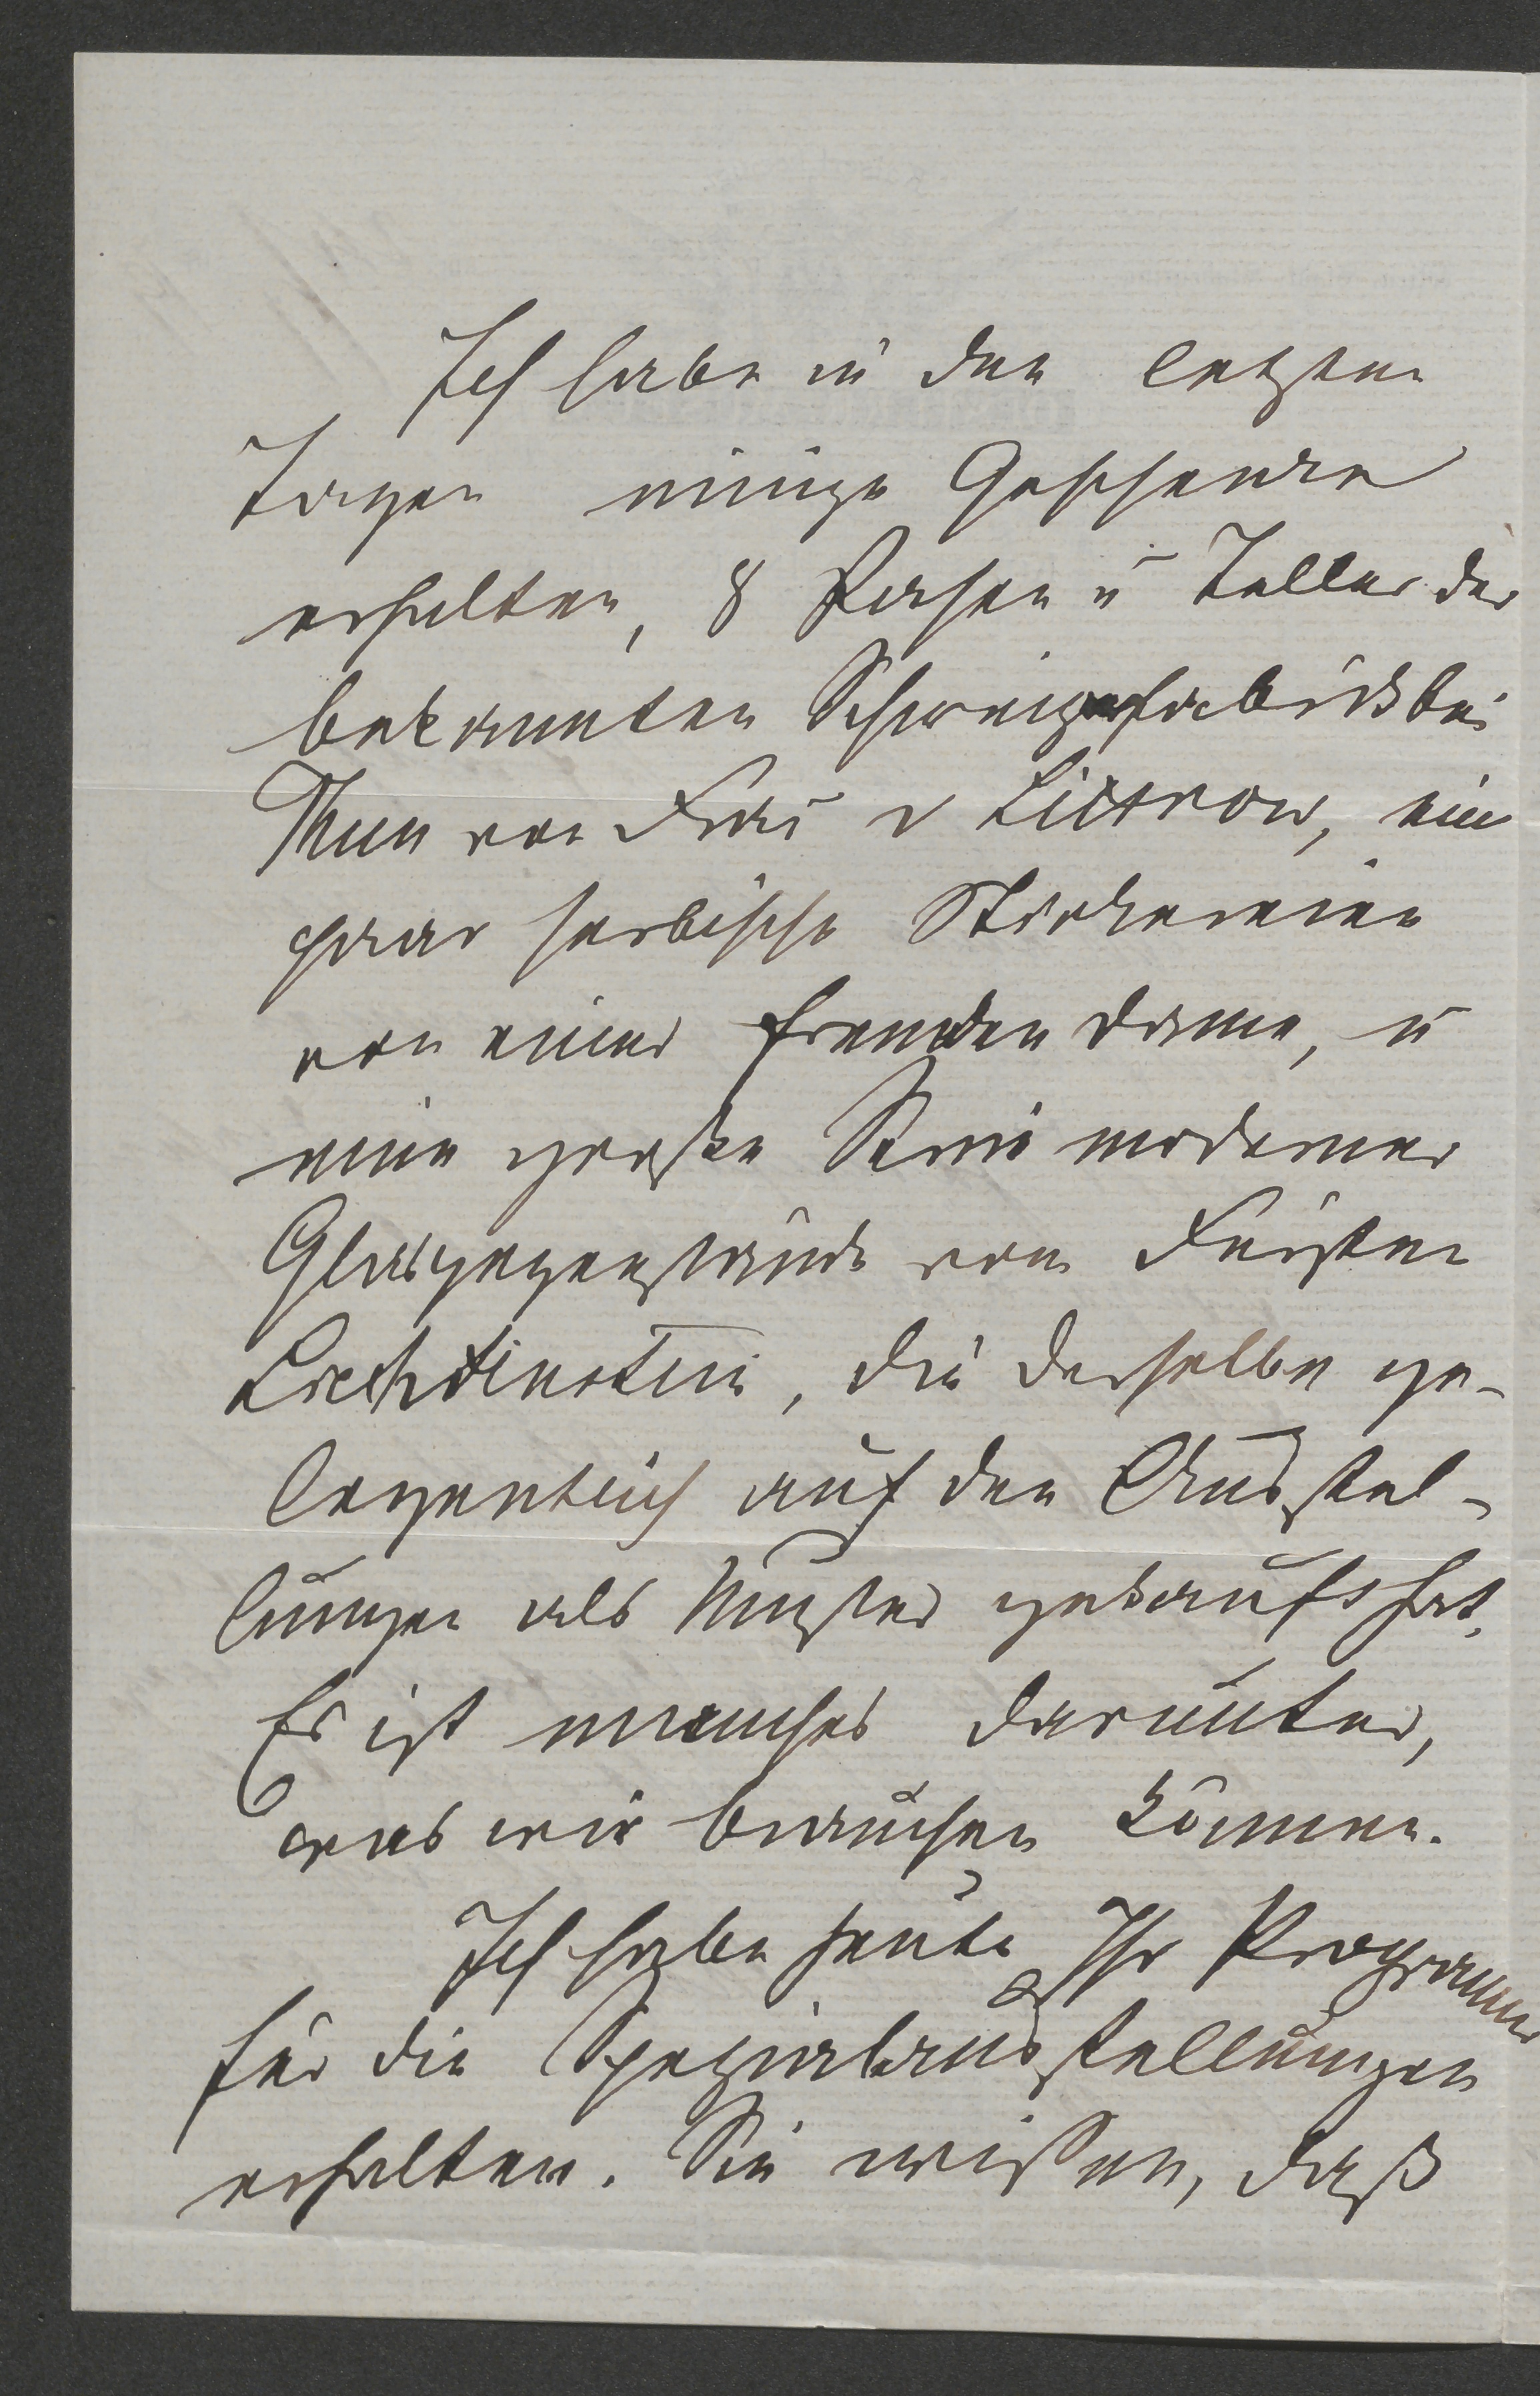 Ich habe in den letzten
Tagen einige Geschenke
erhalten, 8 Vasen u Teller der
bekannten Schweizerfabrik bei
Thun von Frau v Littrow, ein
paar serbische Stickereien
von einer fremden Dame, u
eine große Serie moderner
Glasgegenstände vom Fürsten
Liechtenstein, die derselbe ge-
legentlich auf den Ausstel-
lungen als Muster gekauft hat.
Es ist manches darunter,
was wir brauchen können.
Ich habe heute Ihr Programm
für die Spezialausstellungen
erhalten. Sie wissen, daß